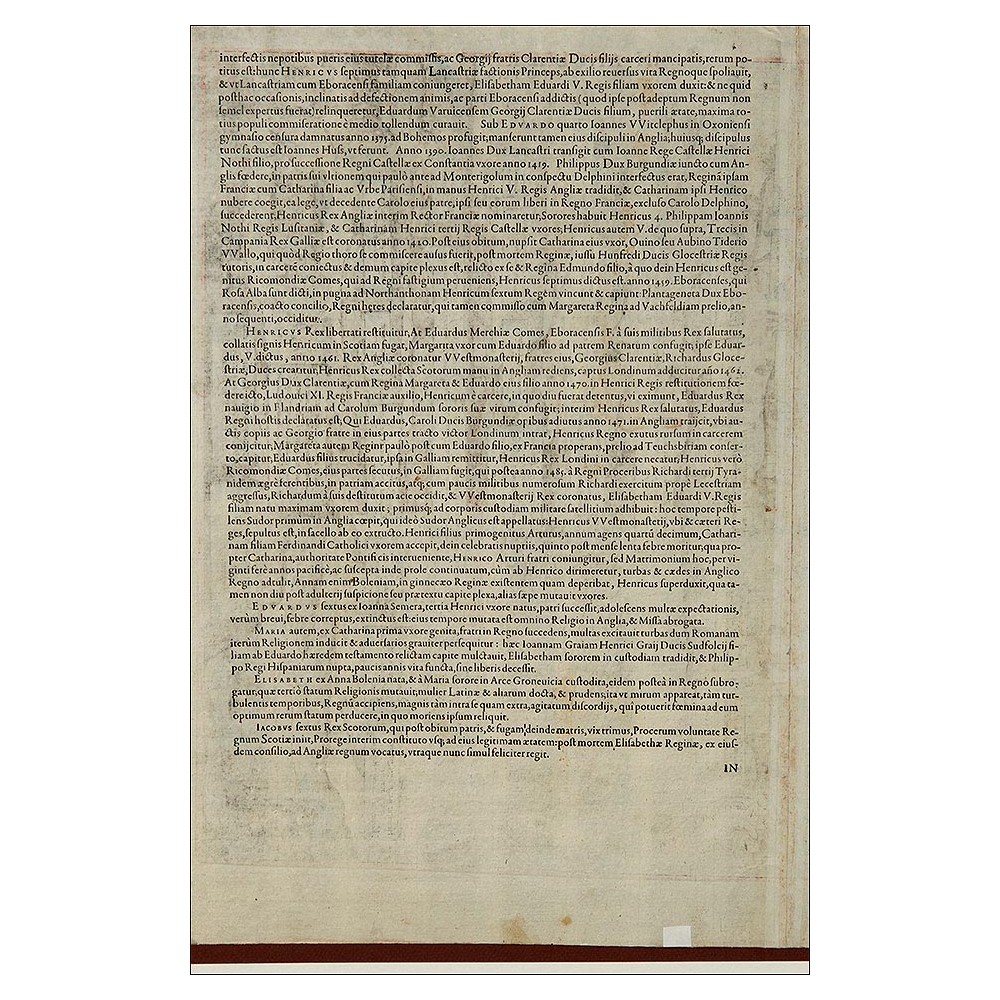 interfectis nepotibus pueris eius tutelæ commissis, ac Georgij fratris Clarentiæ Ducis filijs carceri mancipatis, rerum po-
titus est: hunc HENRICVS septimus tamquam Lancastriæ factionis Princeps, ab exilio reuersus vita Regnoque spoliauit,
& vt Lancastriam cum Eboracensi familiam coniungeret, Elisabetham Eduardi V. Regis filiam vxorem duxit: & ne quid
posthac occasionis, inclinatis ad defectionem animis, ac parti Eboracensi addictis (quod ipse post adeptum Regnum non
semel expertus fuerat) relinqueretur, Eduardum Varuicensem Georgij Clarentiæ Ducis filium, puerili ætate, maxima to-
tius populi commiseratione è medio tollendum curauit. Sub EDVARDO quarto Ioannes VVitclephus in Oxoniensi
gymnasio censura damnatus anno 1375. ad Bohemos profugit; manserunt tamen eius discipuli in Anglia: huiusq; discipulus
tunc factus est Ioannes Huss, vt ferunt. Anno 1390. Ioannes Dux Lancastri transigit cum Ioanne Rege Castellæ Henrici
Nothi filio, pro successione Regni Castellæ ex Constantia vxore anno 1419. Philippus Dux Burgundiæ iuncto cum An-
glis fœdere, in patris sui vltionem qui paulò ante ad Monterigolum in conspectu Delphini interfectus erat, Reginā ipsam
Franciæ cum Catharina filia ac Vrbe Parisiensi, in manus Henrici V. Regis Angliæ tradidit, & Catharinam ipsi Henrico
nubere coegit, ea lege, vt decedente Carolo eius patre, ipsi seu eorum liberi in Regno Franciæ, excluso Carolo Delphino,
succederent, Henricus Rex Angliæ interim Rector Franciæ nominaretur, Sorores habuit Henricus 4. Philippam Ioannis
Nothi Regis Lusitaniæ, & Catharinam Henrici tertij Regis Castellæ vxores; Henricus autem V. de quo supra, Trecis in
Campania Rex Galliæ est coronatus anno 1420. Post eius obitum, nupsit Catharina eius vxor, Ouino seu Aubino Tiderio
VVallo, qui quòd Regio thoro se commiscere ausus fuerit, post mortem Reginæ, iussu Hunfredi Ducis Glocestriæ Regis
tutoris, in carcerē coniectus & demum capite plexus est, relicto ex se & Regina Edmundo filio, à quo dein Henricus est ge-
nitus Ricomondiæ Comes, qui ad Regni fastigium perueniens, Henricus septimus dictus est. anno 1459. Eboracenses, qui
Rosa Alba sunt dicti, in pugna ad Northanthonam Henricum sextum Regem vincunt & capiunt: Plantageneta Dux Ebo-
racensis, coacto concilio, Regni heres declaratur, qui tamen commisso cum Margareta Regina ad Vachfeldiam prelio, an-
no sequenti, occiditur.
HENRICVS Rex libertati restituitur, At Eduardus Merchiæ Comes, Eboracensis F. à suis militibus Rex salutatus,
collatis signis Henricum in Scotiam fugat, Margarita vxor cum Eduardo filio ad patrem Renatum confugit; ipse Eduar-
dus, V. dictus, anno 1461. Rex Angliæ coronatur VVestmonasterij, fratres eius, Georgius Clarentiæ, Richardus Gloce-
striæ, Duces creantur, Henricus Rex collecta Scotorum manu in Angliam rediens, captus Londinum adducitur año 1462.
At Georgius Dux Clarentiæ, cum Regina Margareta & Eduardo eius filio anno 1470. in Henrici Regis restitutionem fœ-
dere icto, Ludouici XI. Regis Franciæ auxilio, Henricum è carcere, in quo diu fuerat detentus, vi eximunt, Eduardus Rex
nauigio in Flandriam ad Carolum Burgundum sororis suæ virum confugit; interim Henricus Rex salutatus, Eduardus
Regni hostis declaratus est, Qui Eduardus, Caroli Ducis Burgundiæ opibus adiutus anno 1471. in Angliam traijcit, vbi au-
ctis copiis ac Georgio fratre in eius partes tracto victor Londinum intrat, Henricus Regno exutus rursum in carcerem
conijcitur, Margareta autem Regina paulò post cum Eduardo filio, ex Francia properans, prelio ad Teuchsbiriam conser-
to, capitur, Eduardus filius trucidatur, ipsa in Galliam remittitur, Henricus Rex Londini in carcere necatur, Henricus verò
Ricomondiæ Comes, eius partes secutus, in Galliam fugit, qui postea anno 1485. à Regni Proceribus Richardi tertij Tyra-
nidem ægrè ferentibus, in patriam accitus, atq; cum paucis militibus numerosum Richardi exercitum propè Lecestriam
aggressus, Richardum à suis destitutum acie occidit, & VVestmonasterij Rex coronatus, Elisabetham Eduardi V. Regis
filiam natu maximam vxorem duxit; primusq; ad corporis custodiam militare satellitium adhibuit: hoc tempore pesti-
lens Sudor primùm in Anglia cœpit, qui ideò Sudor Anglicus est appellatus: Henricus VVestmonasterij, vbi & cæteri Re-
ges, sepultus est, in sacello ab eo extructo. Henrici filius primogenitus Arturus, annum agens quartū decimum, Cathari-
nam filiam Ferdinandi Catholici vxorem accepit, dein celebratis nuptiis, quinto post mense lenta febre moritur, qua pro-
pter Catharina, authoritate Pontificis interueniente, HENRICO Arturi fratri coniungitur, sed Matrimonium hoc, per vi-
ginti ferè annos pacificè, ac suscepta inde prole continuatum, cùm ab Henrico dirimeretur, turbas & cædes in Anglico
Regno adtulit, Annam enim Boleniam, in ginnecæo Reginæ existentem quam deperibat, Henricus superduxit, qua ta-
men non diu post adulterij suspicione seu prætextu capite plexa, alias sæpe mutauit vxores.
EDVARDVS sextus ex Ioanna Semera, tertia Henrici vxore natus, patri successit, adolescens multæ expectationis,
verùm breui, febre correptus, extinctus est: eius tempore mutata est omnino Religio in Anglia, & Missa abrogata.
MARIA autem, ex Catharina prima vxore genita, fratri in Regno succedens, multas excitauit turbas dum Romanam
iterùm Religionem inducit & aduersarios grauiter persequitur: hæc Ioannam Graiam Henrici Graij Ducis Sudfolcij fi-
liam ab Eduardo hæredem testamento relictam capite mulctauit, Elisabetham sororem in custodiam tradidit, & Philip-
po Regi Hispaniarum nupta, paucis annis vita functa, sine liberis decessit.
ELISABETH ex Anna Bolenia nata, & à Maria sorore in Arce Groneuicia custodita, eidem posteà in Regno subro-
gatur, quæ tertiò statum Religionis mutauit; mulier Latinæ & aliarum docta, & prudens; ita vt mirum appareat, tàm tur-
bulentis temporibus, Regnū accipiens, magnis tàm intra se quam extra, agitatum discordijs, qui potuerit fœmina ad eum
optimum rerum statum perducere, in quo moriens ipsum reliquit.
IACOBVS sextus Rex Scotorum, qui post obitum patris, & fugam, deinde matris, vix trimus, Procerum voluntate Re-
gnum Scotiæ iniit, Prorege interim constituto vsq; ad eius legitimam ætatem: post mortem Elisabethæ Reginæ, ex eius-
dem consilio, ad Angliæ regnum vocatus, vtraque nunc simul feliciter regit.
IN